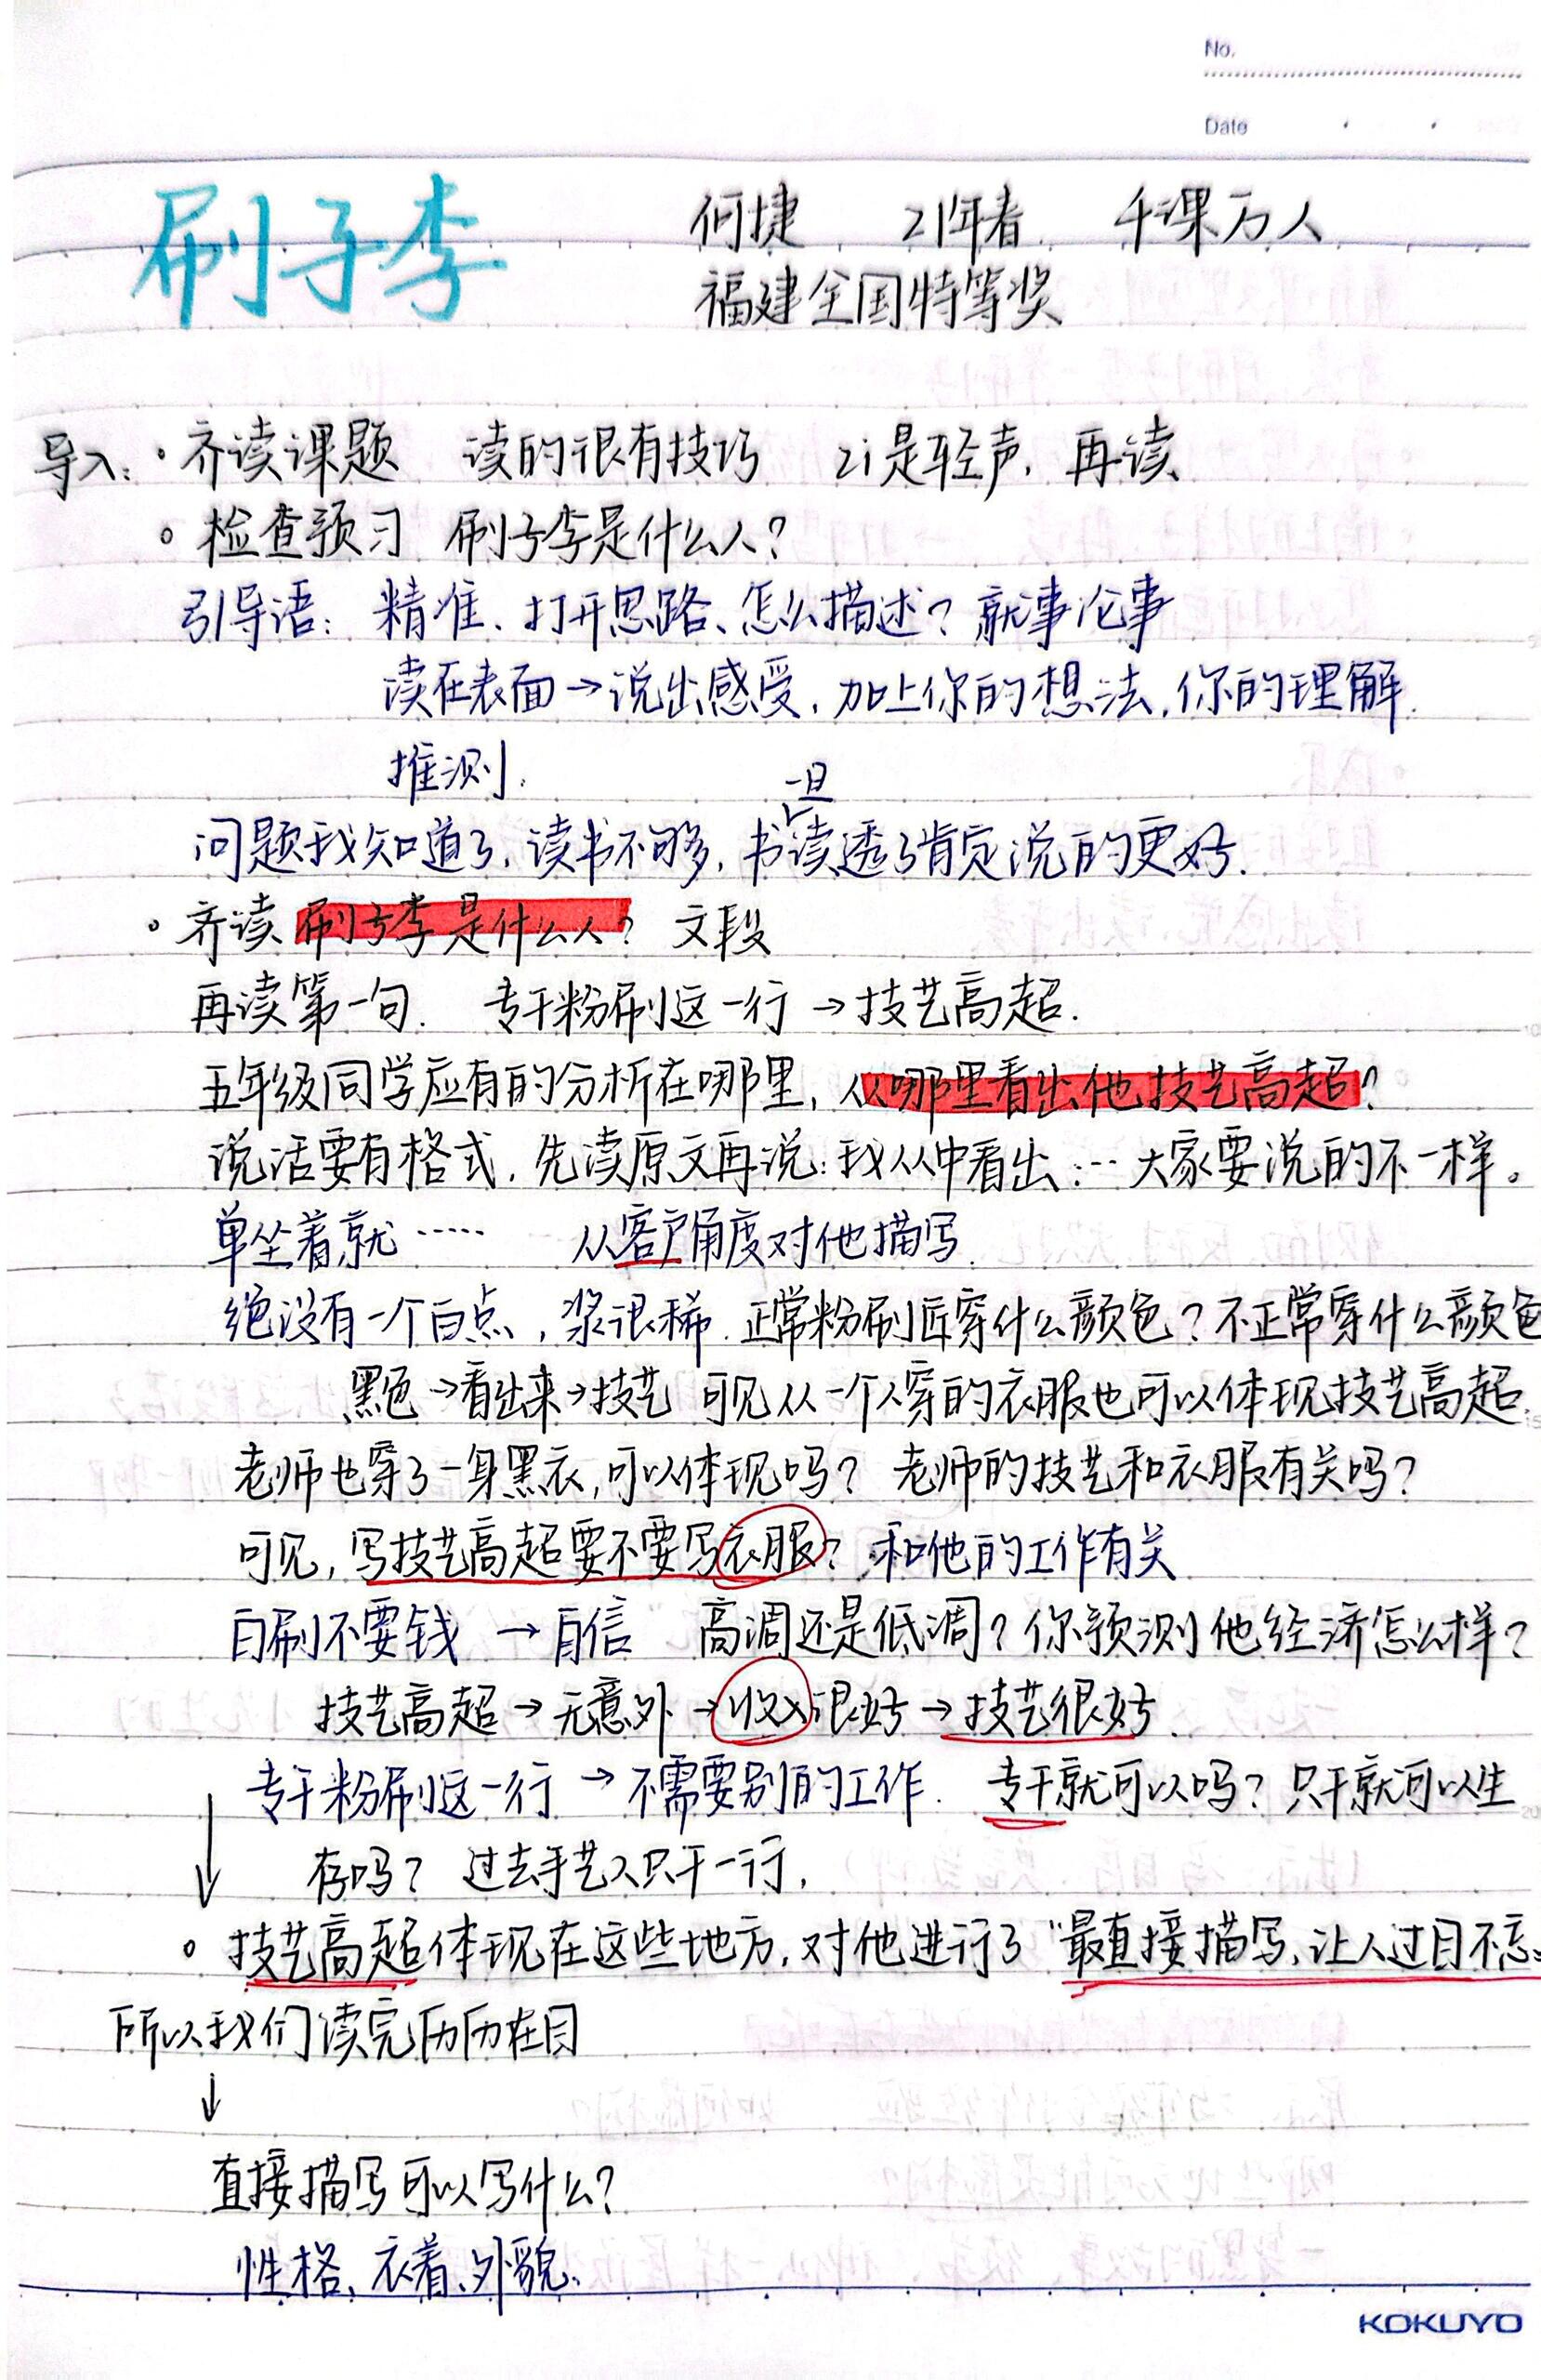 No.
Date
刷子李 何捷 21年春 千课万人
福建全国特等奖
导入：· 齐读课题 读的很有技巧 zi是轻声，再读
。检查预习 刷子李是什么人？
引导语：精准、打开思路、怎么描述？就事论事
读在表面→说出感受，加上你的想法，你的理解.
推测.
一旦
问题我知道了，读书不够，书读透了肯定说的更好.
。齐读 刷子李是什么人？ 文段
再读第一句. 专干粉刷这一行→技艺高超.
五年级同学应有的分析在哪里，从哪里看出他技艺高超？
说话要有格式，先读原文再说：我从中看出：… 大家要说的不一样。
单坐着就…… 从客户角度对他描写.
绝没有一个白点，浆很稀.正常粉刷匠穿什么颜色？不正常穿什么颜色
黑色→看出来→技艺 可见从一个人穿的衣服也可以体现技艺高超.
老师也穿了一身黑衣，可以体现吗？ 老师的技艺和衣服有关吗？
可见，写技艺高超要不要写衣服？和他的工作有关
白刷不要钱 → 自信 高调还是低调？你预测他经济怎么样？
技艺高超→无意外→收入很好→技艺很好.
专干粉刷这一行 → 不需要别的工作. 专干就可以吗？只干就可以生
存吗？ 过去手艺人只干一行，
。技艺高超体现在这些地方，对他进行了“最直接描写，让人过目不忘。
所以我们读完历历在目
↓
直接描写可以写什么？
性格、衣着、外貌、
KOKUYO